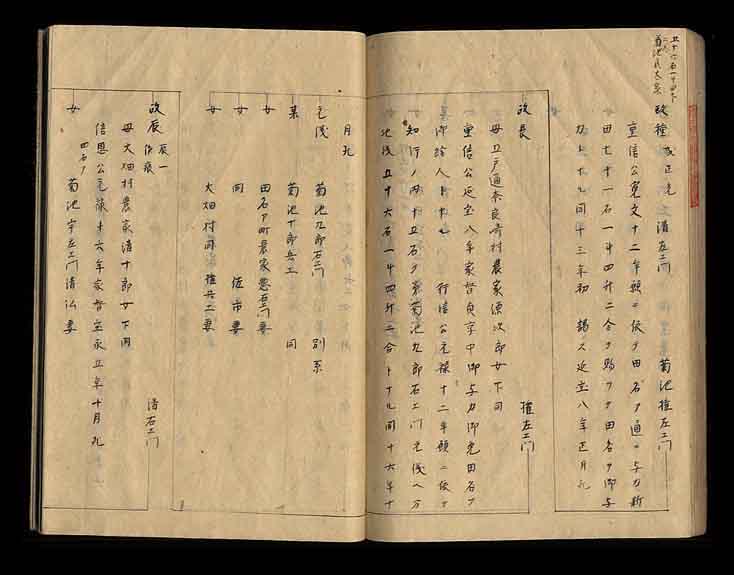 五十六石一斗四升
二合
菊池氏支系
政種 政正 清左エ門 菊池権左エ門
重信公寛文十二年願ニ依テ田石ヲ通ニ与力新
田七十一石一斗四升二合ヲ賜フテ田名ヲ御与
力ト十九同十三年初 謁ス延宝八年正月死
政長 権左エ門
母五戸通奈良崎村農家源次郎女下同
重信公延宝八年家督貞享中御与力御免田石ヲ
御給人ト 行信公元禄十二年願ニ依テ
知行ノ内十五石ヲ弟菊池九郎右エ門元浅ヘ分
地残五十六石一斗四升二合トナル同十六年十
月死
元浅 菊池九郎右エ門 別系
某 菊池十郎兵エ 同
女 田石ア町農家惣右エ門妻
女 同 佐市妻
女 大畑村同 権兵エ妻
政辰 辰一 作痕 清右エ門
母大畑村農家清十郎女下同
信恩公元禄十六年家督宝永五年十月死
女 四石ヲ 菊池宇左エ門清弘妻